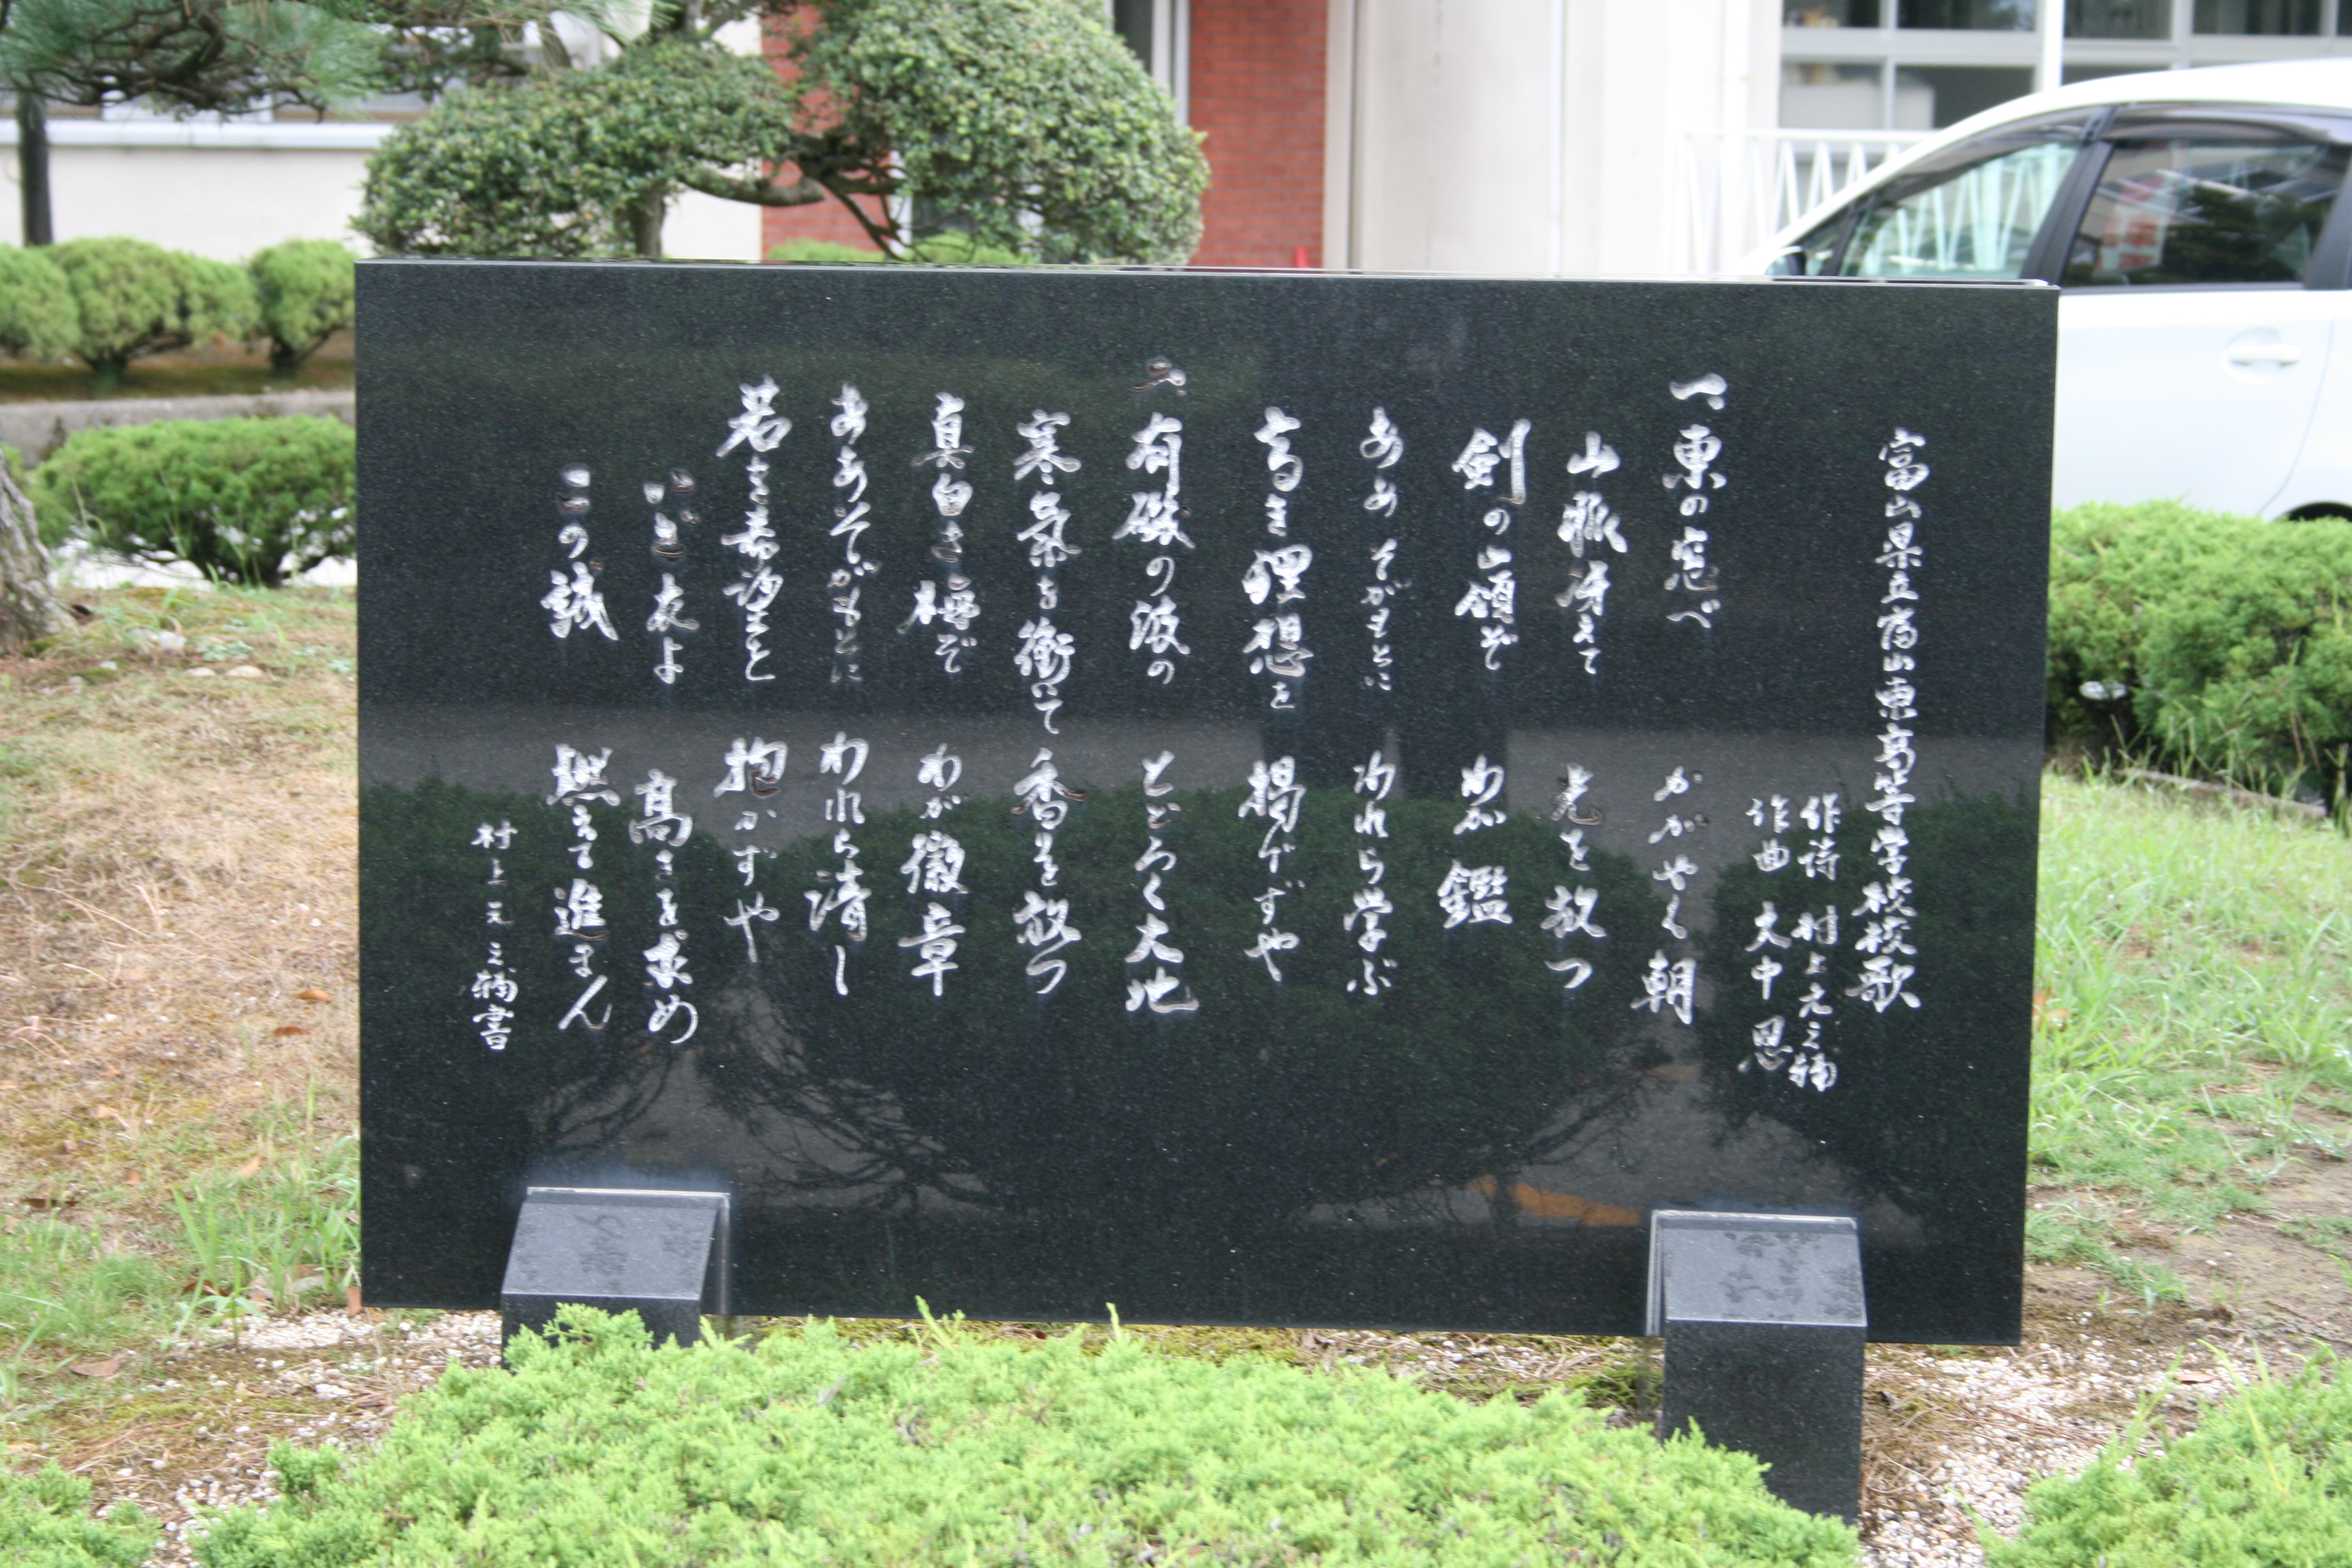 富山県立富山東高等学校校歌
作詩 村上元三
作曲 大中恩
一、東の窓べ かがやく朝
山脈冴えて 光を放つ
剣の山頂ぞ わが鑑
ああそがもとに われら学ぶ
高き理想を 掲げずや
二、有磯の波の とどろく大地
寒氣を衝いて 香を放つ
真白き梅ぞ わが徽章
ああそがもとに われら清し
若き希望を 抱かずや
いざ友よ 高きを求め
この誠 燃えて進まん
村上元三 書